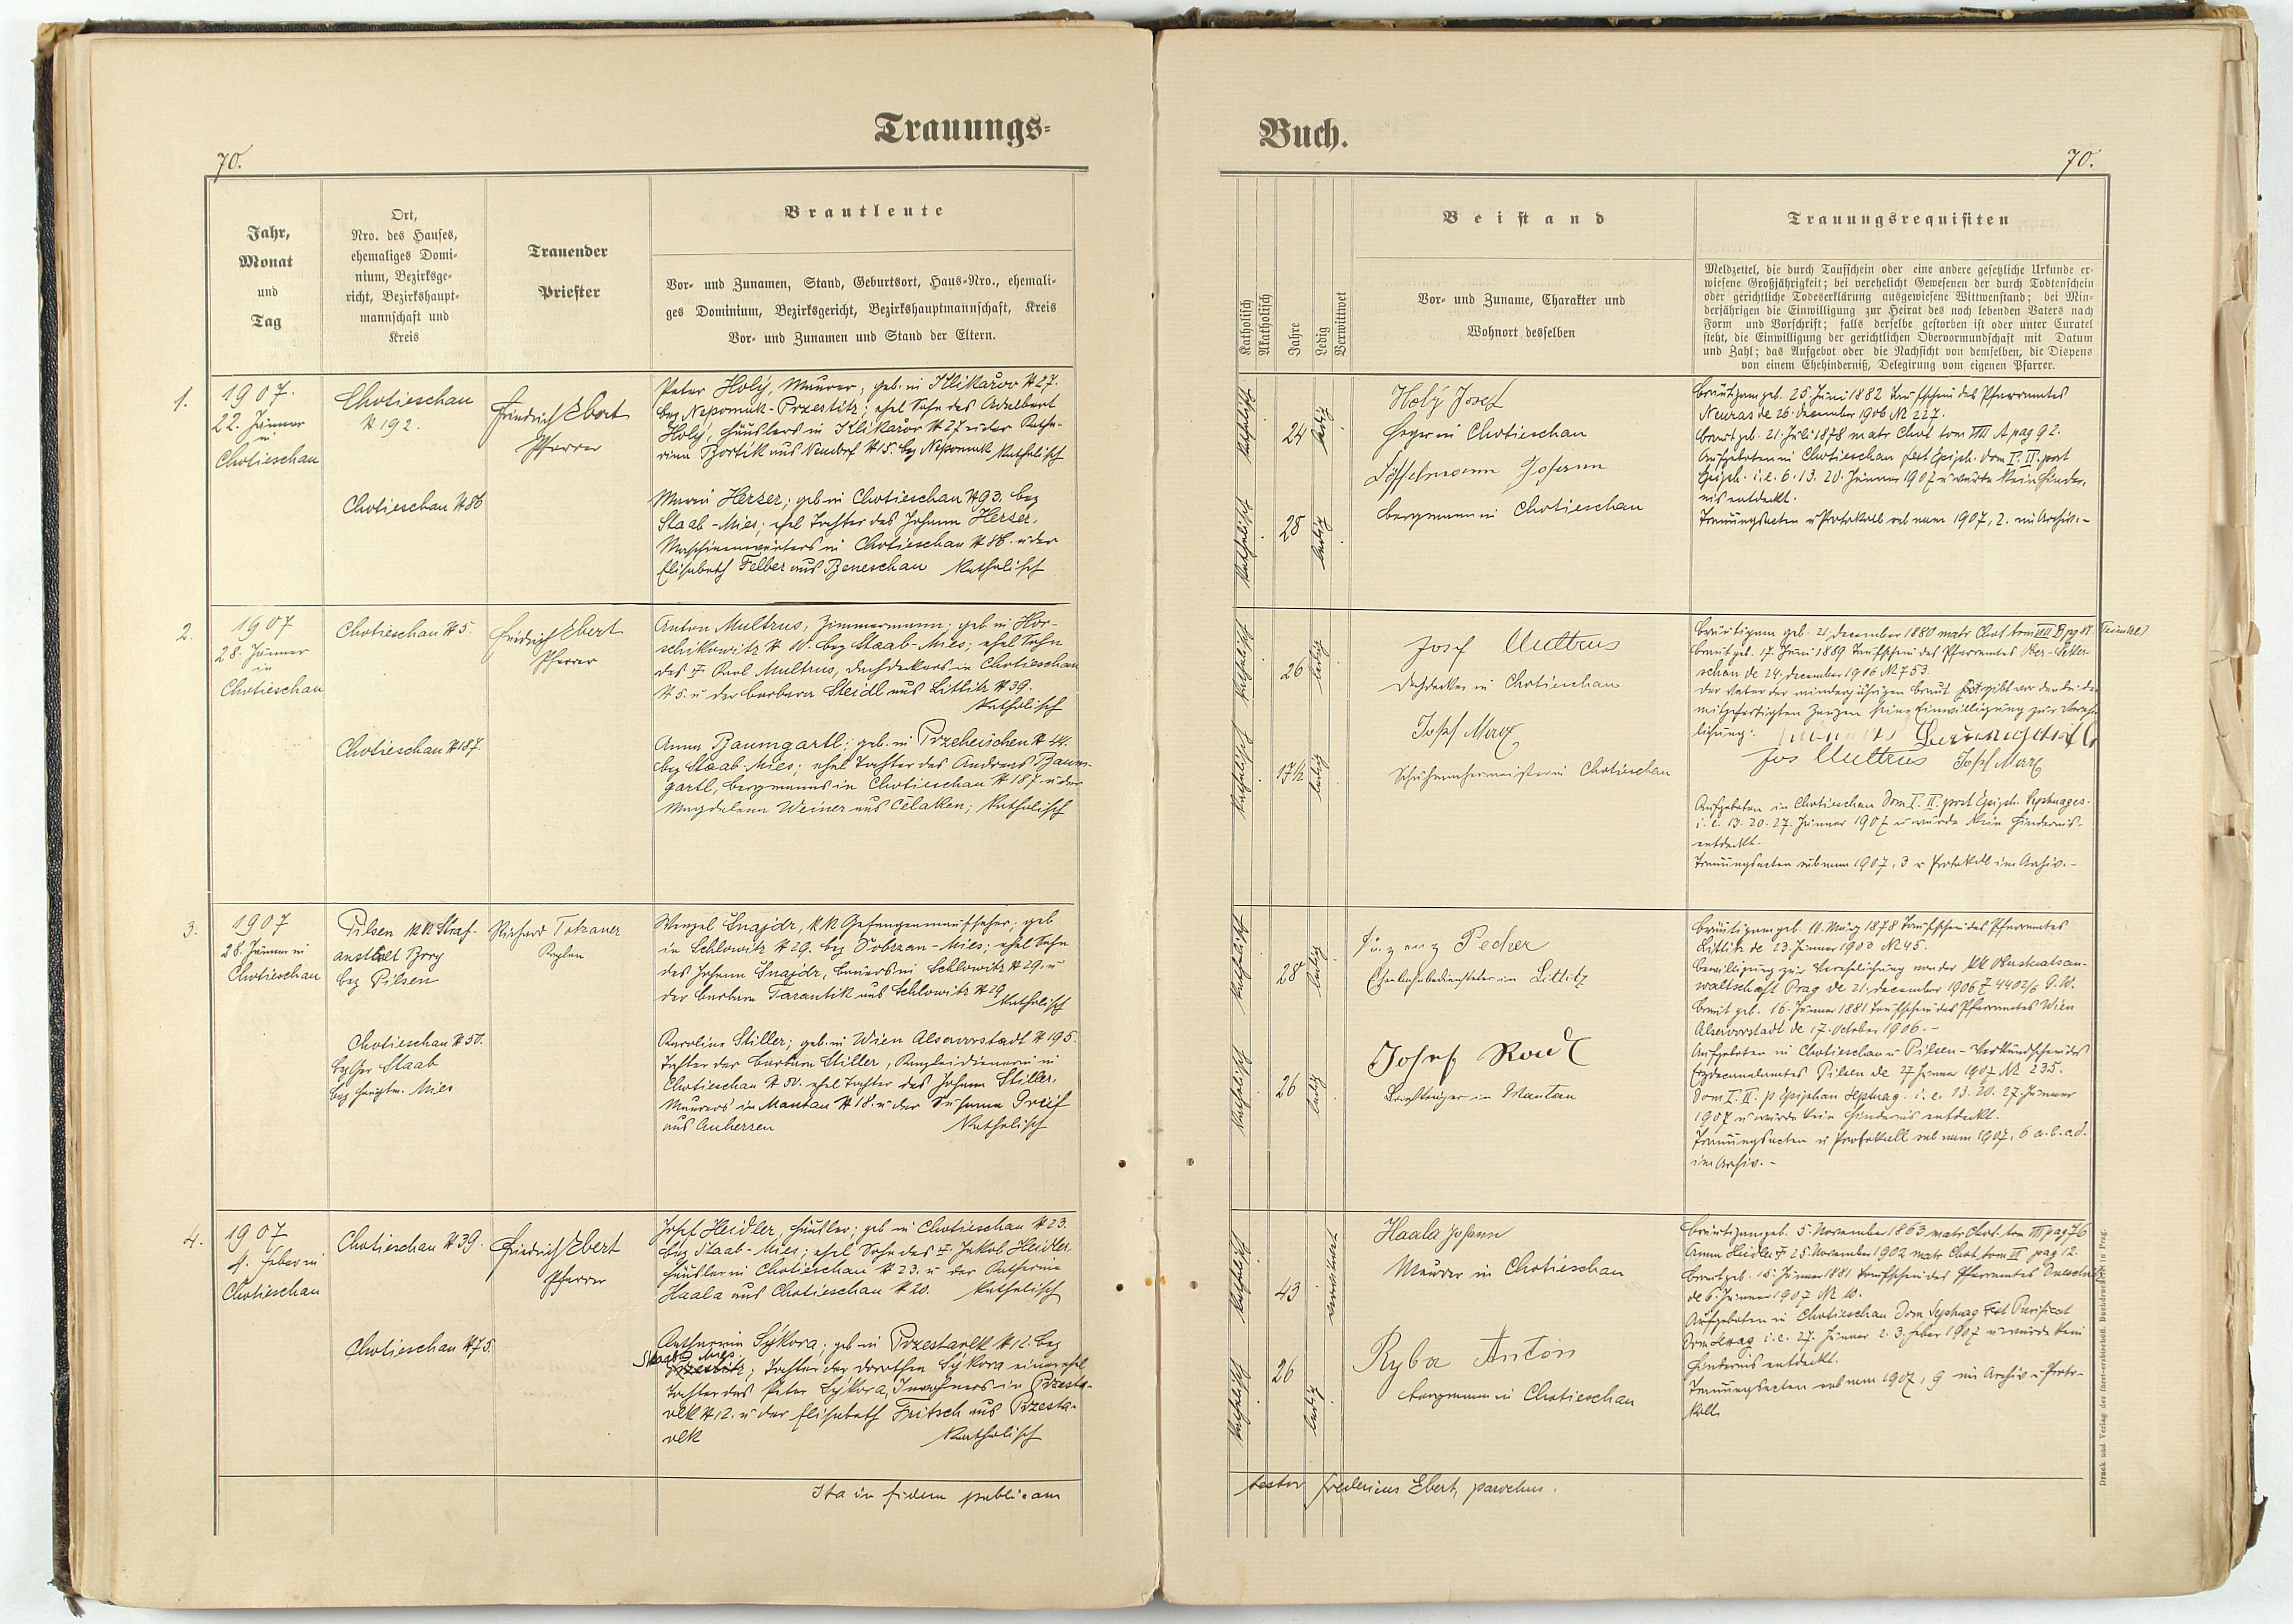 Trauungs-
70.
Jahr,
Monat
und
Tag
Ort,
Nro. des Hauses,
ehemaliges Domi-
nium, Bezirksge-
richt, Bezirkshaupt-
mannschaft und
Kreis
Trauender
Priester
Brautleute
Vor- und Zunamen, Stand, Geburtsort, Haus-Nro., ehemali-
ges Dominium, Bezirksgericht, Bezirkshauptmannschaft, Kreis
Vor- und Zunamen und Stand der Eltern.
1.
1907.
22. Jänner
in
Chotieschau
Chotieschau
N 192.
Chotieschau N 86
Friedrich Ebert
Pfarrer
Peter Holý, Maurer; geb. in Klikařov N 27.
bez Nepomuk-Przestitz; ehel Sohn des Adalbert
Holý, Häuslers in Klikařov N 27 u der Katha-
rina Bortik aus Neudorf N 15. bez Nepomuk Katholisch
Maria Herser, geb in Chotieschau N 93. bez
Staab-Mies; ehel Tochter des Johann Herser,
Maschinenwärters in Chotieschau N 86. u der
Elisabeth Felber aus Beneschau Katholisch
2.
1907
28. Jänner
in
Chotieschau
Chotieschau N 5.
Chotieschau N 187.
Friedrich Ebert
Pfarrer
Anton Multrus, Zimmermann; geb in Hor-
schikowitz N 10. bez Staab-Mies; ehel Sohn
des † Karl Multrus, Dachdeckers in Chotieschau
N 5. u der Barbara Steidl aus Littitz N 39.
Katholisch
Anna Baumgartl; geb. in Przeheischen N 44.
bez Staab-Mies; ehel Tochter des Andreas Baum-
gartl, Bergmanns in Chotieschau N 187. u der
Magdalena Weiner aus Čelaken; Katholisch
3.
1907
28. Jänner in
Chotieschau
Pilsen kk Straf-
anstalt Bory
bez Pilsen
Chotieschau N 50.
bez Ger Staab
bez Hauptm. Mies
Richard Totzauer
Kaplan
Wenzel Šnajdr, kk Gefangenaufseher; geb
in Schlowitz N 29. bez Dobrzan-Mies; ehel Sohn
des Johann Šnajdr, Bauers in Schlowitz N 29. u
der Barbara Tarantik aus Schlowitz N 29
Katholisch
Karoline Stiller; geb. in Wien Alservorstadt N 195.
Tochter der Barbara Stiller, Kanzleidienerin in
Chotieschau N 50. ehel Tochter des Johann Stiller,
Maurers in Mantau N 18. u der Susanna Greif
aus Auherzen Katholisch
4.
1907
4. Feber in
Chotieschau
Chotieschau N 39.
Chotieschau N 75.
Friedrich Ebert
Pfarrer
Josef Heidler, Häusler; geb in Chotieschau N 23.
bez Staab-Mies; ehel Sohn des † Jakob Heidler,
Häusler in Chotieschau N 23. u der Katharina
Haala aus Chotieschau N 20. Katholisch
Katharina Sýkora; geb in Przestavlk N 12. bez
Staab-Mies.
Przestitz; Tochter der Dorothea Sýkora einer ehel
Tochter des Peter Sýkora, Inwohners in Przesta-
vlk N 12. u der Elisabeth Fritsch aus Przesta-
vlk Katholisch
Ita in fidem publicam
Buch.
70.
Katholisch
Akatholisch
Jahre
Ledig
Verwittwet
Beistand
Vor- und Zuname, Charakter und
Wohnort desselben
Trauungsrequisiten
Meldzettel, die durch Taufschein oder eine andere gesetzliche Urkunde er-
wiesene Großjährigkeit; bei verehelicht Gewesenen der durch Todtenschein
oder gerichtliche Todeserklärung ausgewiesene Wittwenstand; bei Min-
derjährigen die Einwilligung zur Heirat des noch lebenden Vaters nach
Form und Vorschrift; falls derselbe gestorben ist oder unter Curatel
steht, die Einwilligung der gerichtlichen Obervormundschaft mit Datum
und Zahl; das Aufgebot oder die Nachsicht von demselben, die Dispens
von einem Ehehinderniß, Delegirung vom eigenen Pfarrer.
katholisch
24
ledig
katholisch
28
ledig
Holý Josef
Heger in Chotieschau
Löffelmann Johann
Bergmann in Chotieschau
Bräutigam geb. 25. Juni 1882 Taufschein des Pfarramtes
Neurasde 26. December 1906 N 227.
Braut geb. 21. Juli 1878 matr Chot tom VIII A pag 92.
Aufgeboten in Chotieschau fest Epiph. Dom I. II. post
Epiph. i. e. 6. 13. 20. Jänner 1907 u wurde kein Hinder-
nis entdeckt.
Trauungsacten u Protokoll sub num 1907, 2. im Archiv.-
katholisch
26
ledig
katholisch
17½
ledig
Josef Multrus
Dachdecker in Chotieschau
Josef Marx
Schuhmachermeister in Chotieschau
Bräutigam geb. 21. December 1880 matr Chot tom VIII B pag 88.
Braut geb. 17. Juni 1889 Taufschein des Pfarramtes Ober-Sekер-
schan de 24. December 1906 N 753.
Der Vater der minderjährigen Braut gibt vor den beiden
mitgefertigten Zeugen seine Einwilligung zur Vereh-
lichung: Baumgartl
Jos Multrus Josef Marx
Aufgeboten in Chotieschau Dom I. II. post Epiph. Septuages.
i. e. 13. 20. 27. Jänner 1907 u wurde kein Hindernis
entdeckt.
Trauungsacten sub num 1907, 3 u Protokoll im Archiv.-
katholisch
28
ledig
katholisch
26
ledig
Pecher
Eisenbahnbediensteter in Littitz
Josef
in Mantau
Bräutigam geb. 10. März 1878 Taufschein des Pfarramtes
Littitz de 23. Jänner 1903 N 45.
Bewilligung zur Verehelichung von der kk Oberstaatsan-
waltschaft Prag de 21. December 1906
Braut geb. 16. Jänner 1881 Taufschein des Pfarramtes Wien
Alservorstadt de 17. October 1906.-
Aufgeboten in Chotieschau u Pilsen - Verkündschein des
Erzdecanalamtes Pilsen de 27 Jänner 1907 N 235.
Dom I. II. p Epiphan Septuag. i. e. 13. 20. 27. Jänner
1907 u wurde kein Hindernis entdeckt.
Trauungsacten u Protokoll sub num 1907, 6 a. b. c. d.
im Archiv.-
katholisch
43
verwitwet
katholisch
26
ledig
Haala Johann
Maurer in Chotieschau
Ryba Anton
Bergmann in Chotieschau
Bräutigam geb. 5. November 1863 matr Chot. tom VII pag 76
Anna Heidler † 25. November 1902 matr Chot. tom II pag 12.
Braut geb. 15. Jänner 1881 Taufschein des Pfarramtes
de 6. Jänner 1907 N 10.
Aufgeboten in Chotieschau Dom Septuag Fest Purificat
Dom Sexag i. e. 27. Jänner 2. 3. Feber 1907 u wurde kein
Hindernis entdeckt.
Trauungsacten sub num 1907, 9 im Archiv u Proto-
koll
testor Fredericus Ebert, parochus.
Druck und Verlag der fürst-erzbischöfl. Buchdruckerei in Prag.